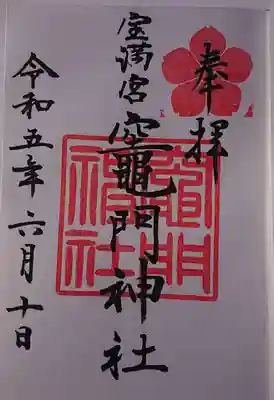 奉拝
宝満宮
竈門神社
令和五年六月十日
竈門神社